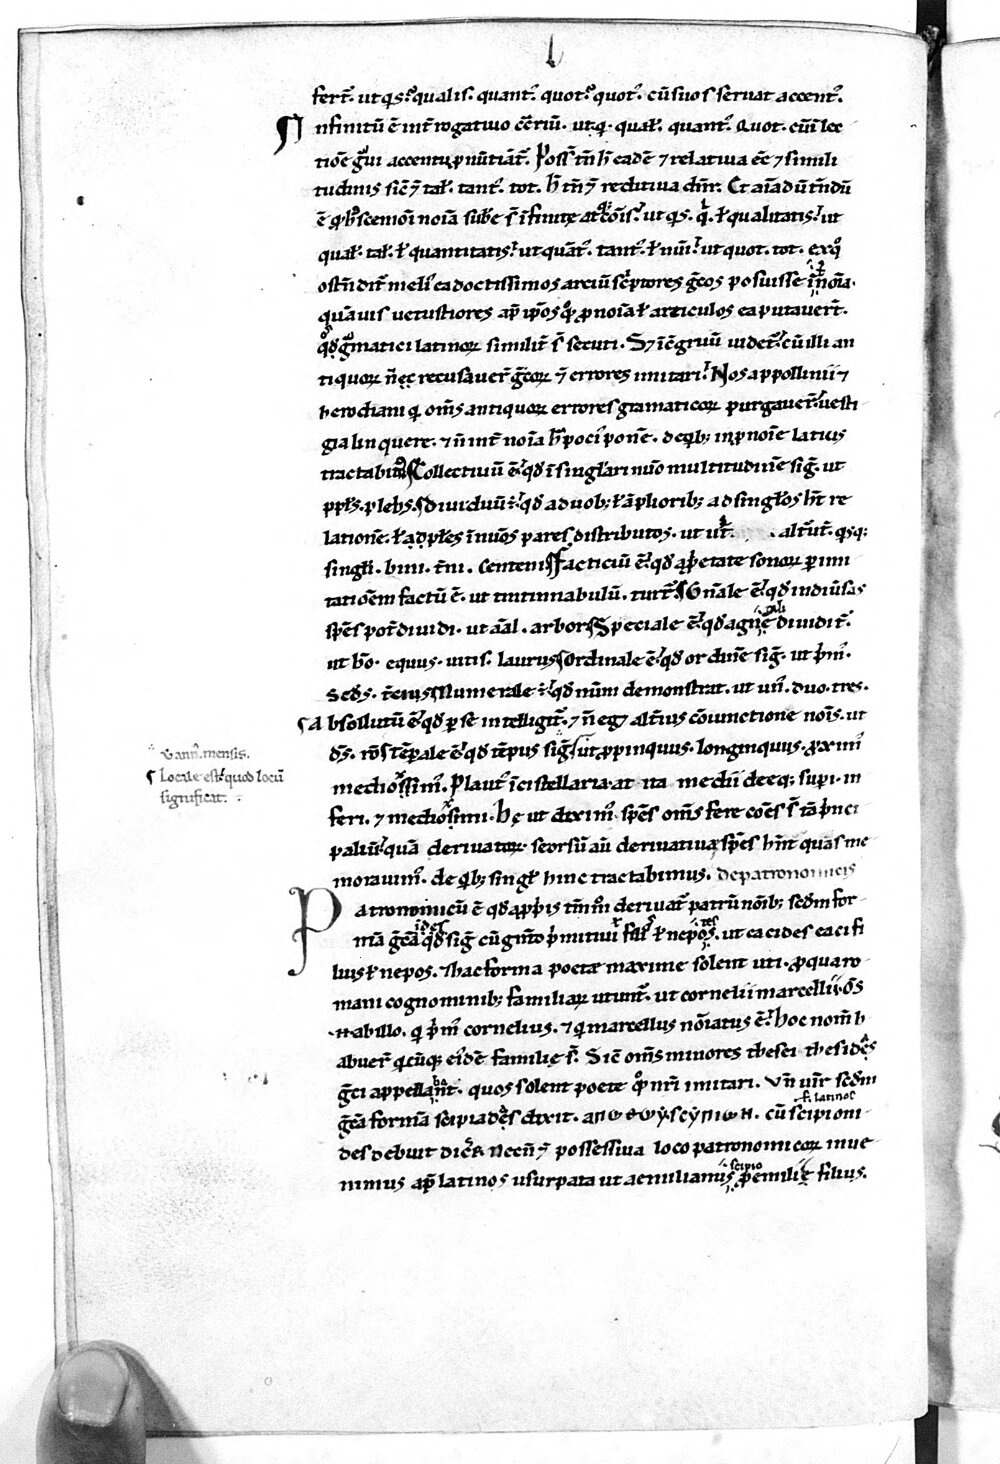 fert̄. ut qͥs. qualis. quantꝰ. quotꝰ. quotꝰ. cū suos seruat accentꝰ.
¶ nfinitū ē int̄rogatiuo c̄trariū. ut qͥ. qual'. quantꝰ. Quot. cū ī lec
tiōe gͣui accentu ꝓnūtiāt̄. Poss̄ tn̄ h̄ eadē ⁊ relatiua ēē ⁊ simili
tudinis sic̄ ⁊ tal'. tantꝰ. tot. h̄ tn̄ ⁊ redditiua dn̄r. Et aīaduertēdū
ē
ut qͥs. qͥ. ł qualitatis. ut
qual'. tal'. ł quantitatis. ut quātꝰ. tantꝰ. ł nūi. ut quot. tot. ex qͦ
ostn̄dit̄ meliꝰ ea doctissimos artiū sc̄ptores gͤcos posuisse īt̄ noīa.
quāuis uetustiores ap̄ ip̄os qͦqꝫ ꝓnoīa ł articulos ea putauer̄t.
qͦs gͣmatici latinoꝝ similit̄ s̄ secuti. S; īc̄gruū uidet̄ cū illi an
tiquoꝝ n̄ ęc recusāuer̄ gͤcoꝝ ⁊ errores imitari. Nos appollinii ⁊
herodiani qͥ om̄s antiquoꝝ errores gramaticoꝝ purgauer̄. uesti
gia linquere. ⁊ n̄ int̄ noīa h̄ pociꝰ ponē. de qͥbꝫ in ꝓnoīe latius
tractabimꝰ ¶ Collectiuū ē qd̄ ī singl'ari nūo multitudinē sig̅. ut
ppl's. plebs. ¶ diuiduū ē qd̄ a duobꝫ ł ā pluribꝫ ad singl'os h̄t re
lationē. ł ad pl'es ī nūos pares distributos. ut ut̄. alt̄ut̄. qͥsqꝫ
singl'i. bini. t̄ni. centeni ¶ Facticiū ē qd̄ a ꝓp̄etate sonoꝝ ꝑ imi
tatiōem factū ē. ut tintinnabulū. turt̄ ¶ Gn̄ale ē qd̄ in diūsas
sp̄es pot̄ diuidi. ut aīal. arbor ¶ Speciale ē qd̄ a gn̄e diuidit̄.
ut hō. equus. uitis. laurus ¶ Ordinale ē qd̄ ordinē sig̅. ut p̄mꝰ.
Sed̄s. t̄cius ¶ Numerale ē qd̄ nūm demonstrat. ut unꝰ. duo. tres.
¶ Absolutū ē qd̄ ꝑ se intelligit̄. ⁊ n̄ eg; alt̄ius cōiunctione noīs. ut
d̄s. rō ¶ Tēp̄ale ē qd̄ tēpus sig̅. ut ꝓpinquus. longinquus. ꝓximꝰ
ˑ ˑ ut annꝰ. mensis.
¶ Locale est quod locū
significat.
medioximꝰ. Plautꝰ ī cistellaria. at ita me dii deeqꝫ supi. in
feri. ⁊ medioximi. Hę ut diximꝰ. sp̄es om̄s fere cōēs s̄ tā p̄nci
paliū quā deriuatoꝝ. seorsū aū deriuatiua sp̄es hn̄t quas me
morauimꝰ. de qͥbꝫ singl' hinc tractabimus. de patronomicis
Patronomicū ē qd̄ a ꝓp̄is tm̄mͦ deriuat̄ patrū nōibꝫ sedm̄ for
mā gͤcā qd̄ sig̅ cū gn̄to p̄mitiui filiꝰ ł nepos. ut eacides eaci fi
lius ł nepos. ⁊ hac forma poetae maxime solent uti. ꝓ qua ro
mani cognominibꝫ familiaꝝ utunt̄. ut cornelii marcelli. ōs
n̄ ab illo. qͥ p̄mꝰ cornelius. ⁊ qͥ marcellus nōiatus ē. hoc nom̄ h
abuer̄ qͥcūqꝫ eiꝰdē familię s̄. Sic̄ om̄s minores thesei thesides
gͤci appellabāt. quos solent poete qͦqꝫ nr̄i imitari. Vn̄ uir̄ sedm̄
gͤcā formā scipiades dixit. cū scipioni
f. latinos
des debuit dicere. Necn̄ ⁊ possessiua loco patronomicoꝝ inue
nimus ap̄ latinos usurpata ut aemilianus scipio ꝓ emilię filius.